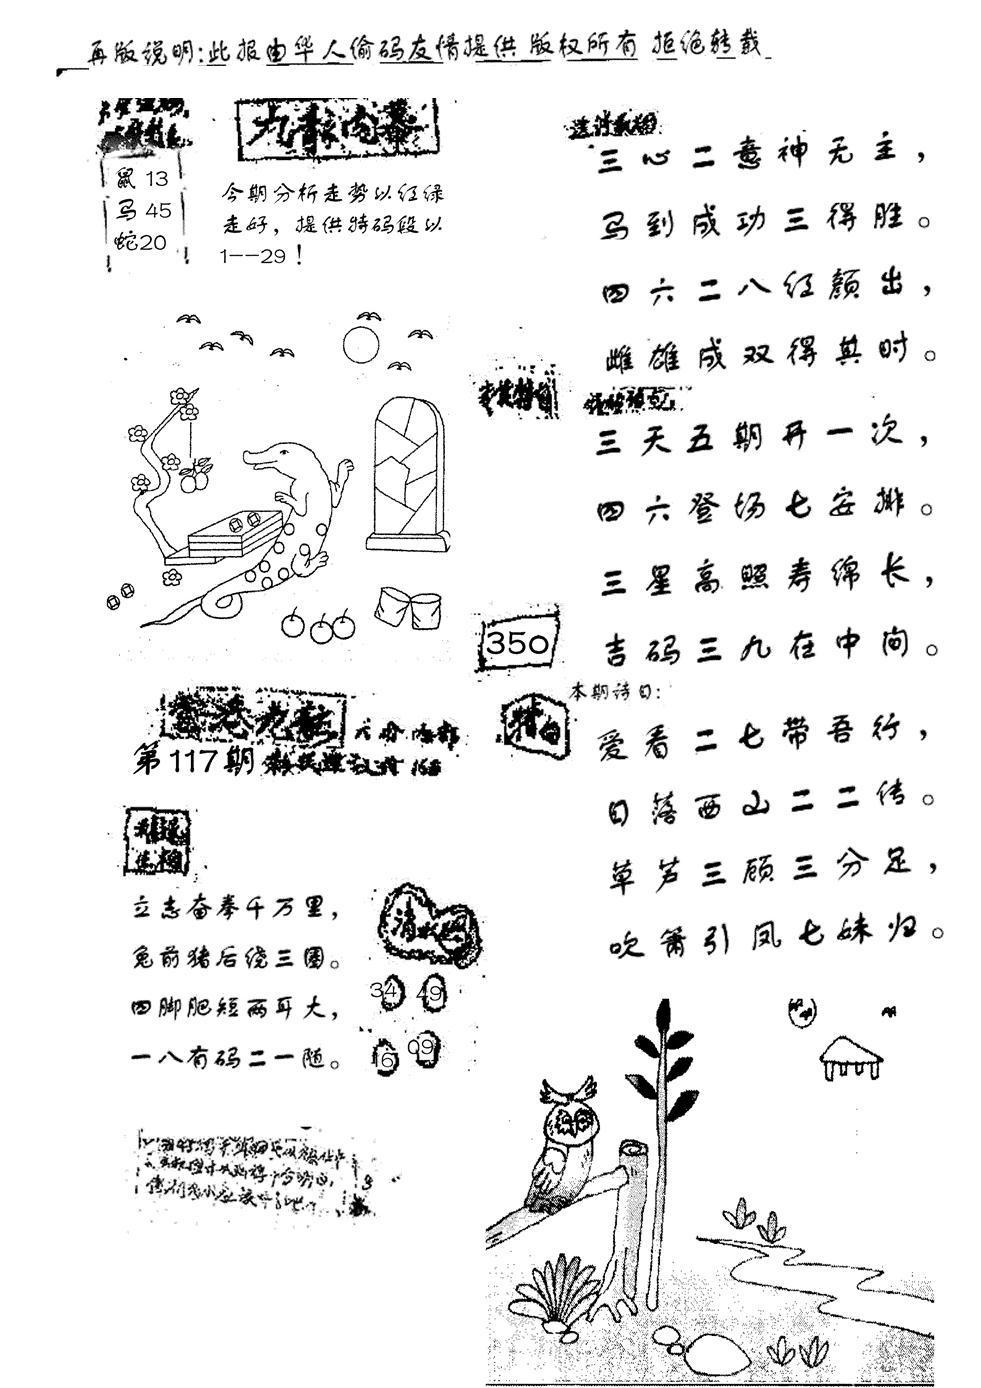 再版说明:此报由华人偷码友情提供 版权所有 拒绝转载
九龍内幕
鼠 13
马 45
蛇20
今期分析走势以红绿
走好，提供特码段以
1--29！
三心二意神无主，
马到成功三得胜。
四六二八红颜出，
雌雄成双得其时。
三天五期开一次，
四六登场七安排。
三星高照寿绵长，
吉码三九在中间。
350
特自
本期诗曰：
爱看二七带吾行，
日落西山二二传。
草芦三顾三分足，
吹箫引凤七妹归。
第117期
立志奋拳千万里，
兔前猪后绕三圈。
四脚肥短两耳大，
一八有码二一随。
34 49
16 09